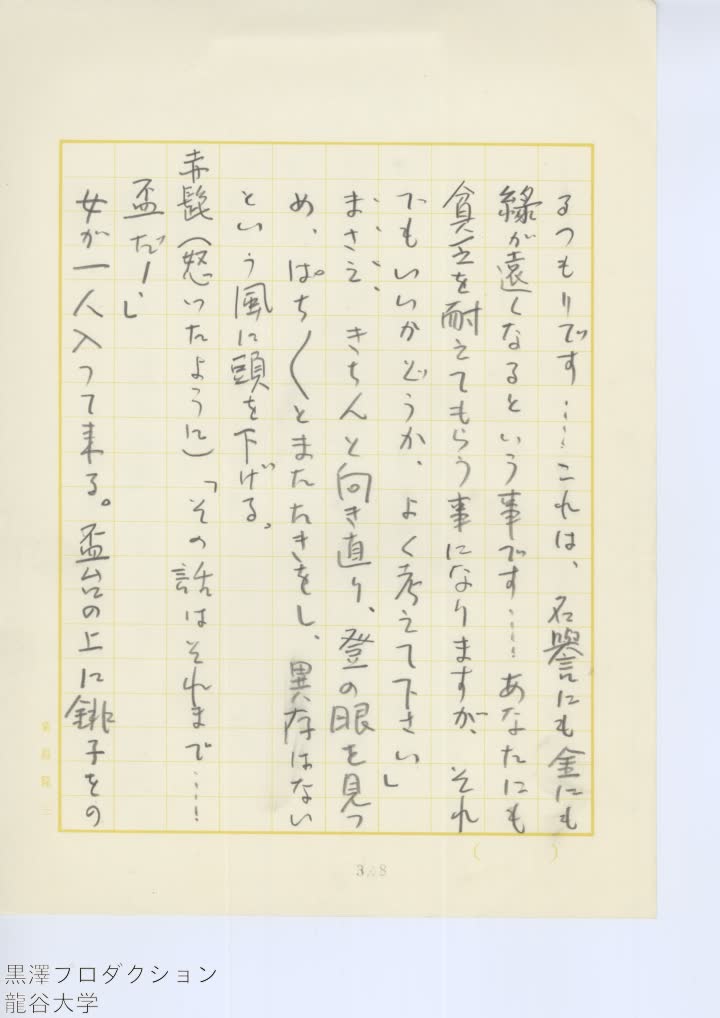 るつもりです……これは、名譽にも金にも
縁が遠くなるという事です……あなたにも
貧乏を耐えてもらう事になりますが、それ
でもいいかどうか、よく考えて下さい」
まさえ、きちんと向き直り、登の眼を見つ
め、ぱち〱とまたたきをし、異存はない
という風に頭を下げる。
赤髭（怒ったように）「その話はそれまで……！
盃だ！」
女が一人入って来る。盃台の上に銚子をの
3 8
黒澤プロダクション
龍谷大学